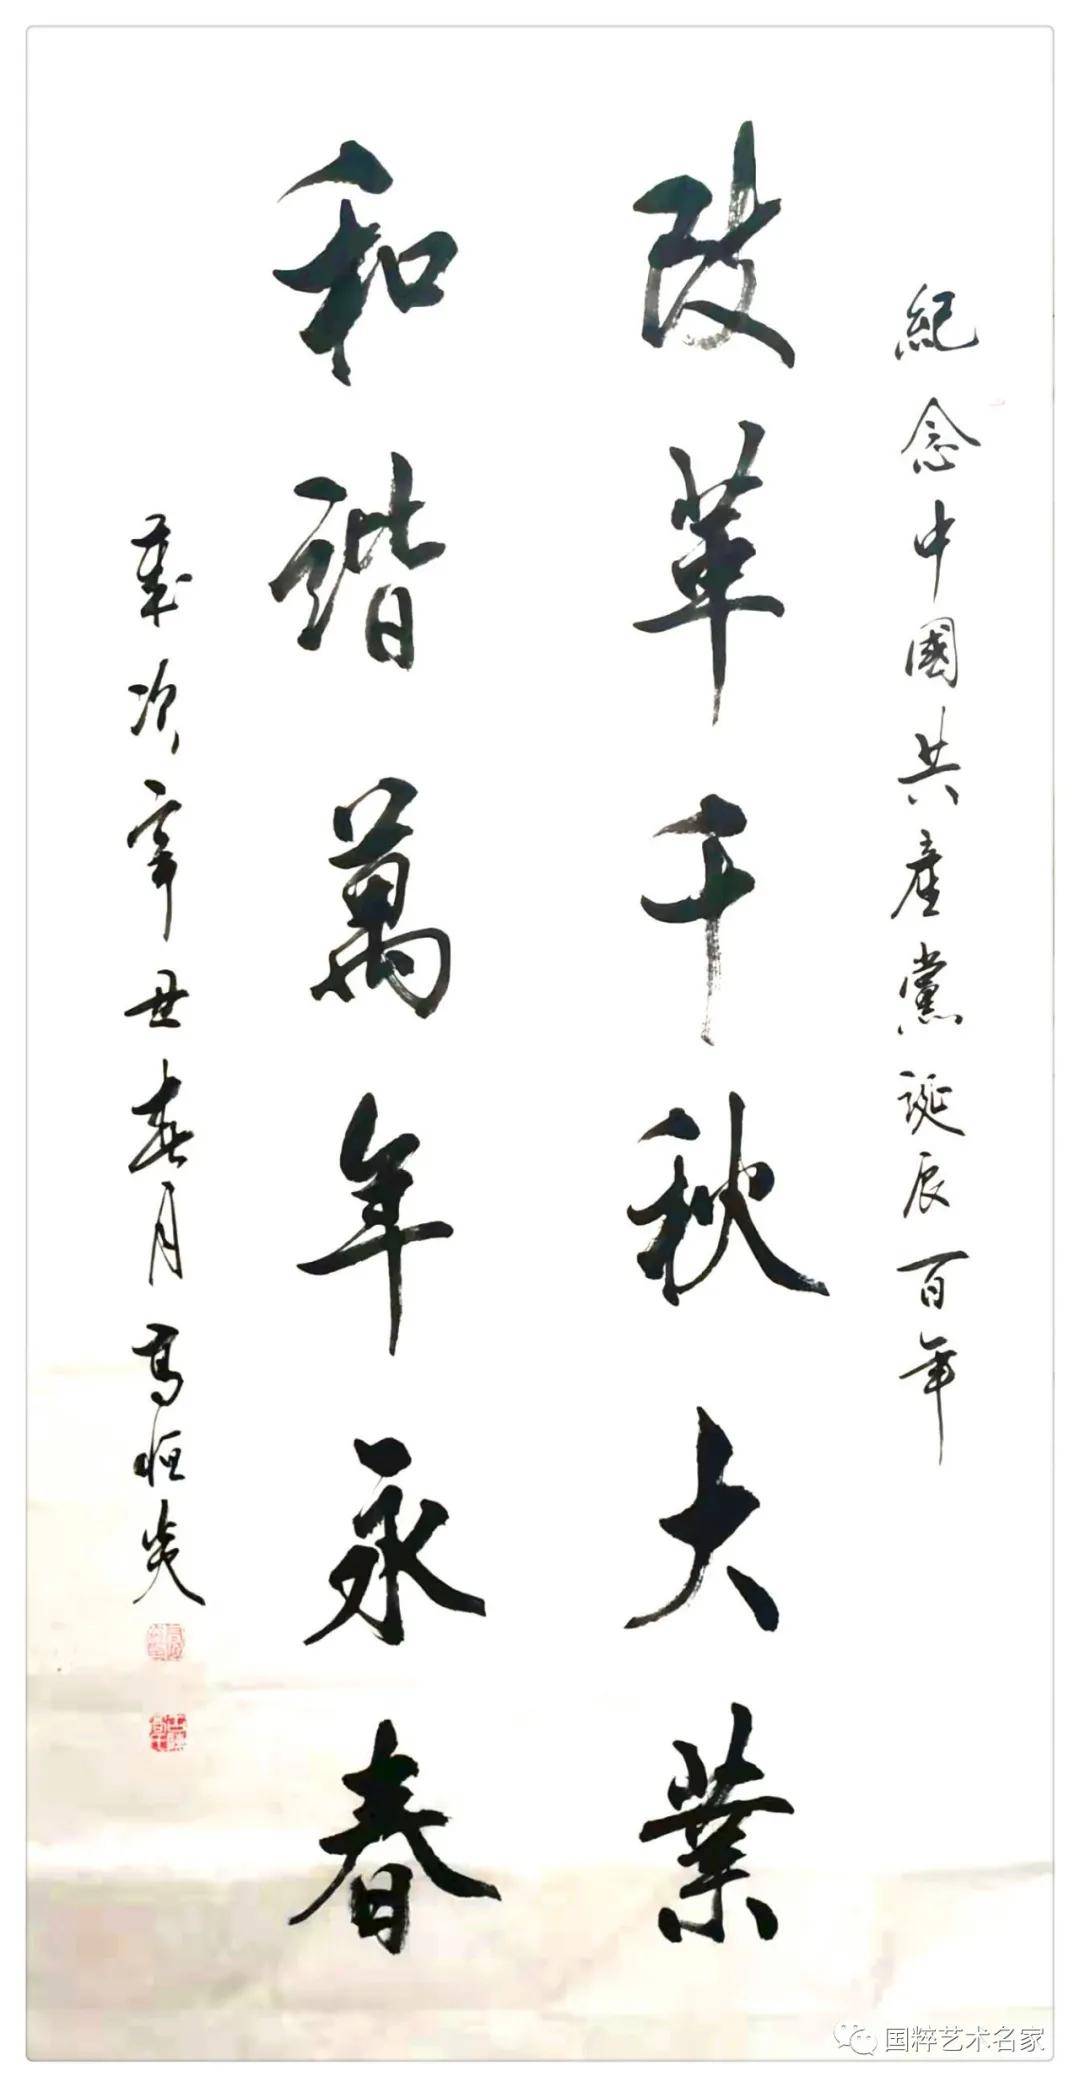 紀念中國共產黨誕辰百年
改革千秋大業
和諧萬年永春
歲次辛丑春月高恒炎
国粹艺术名家